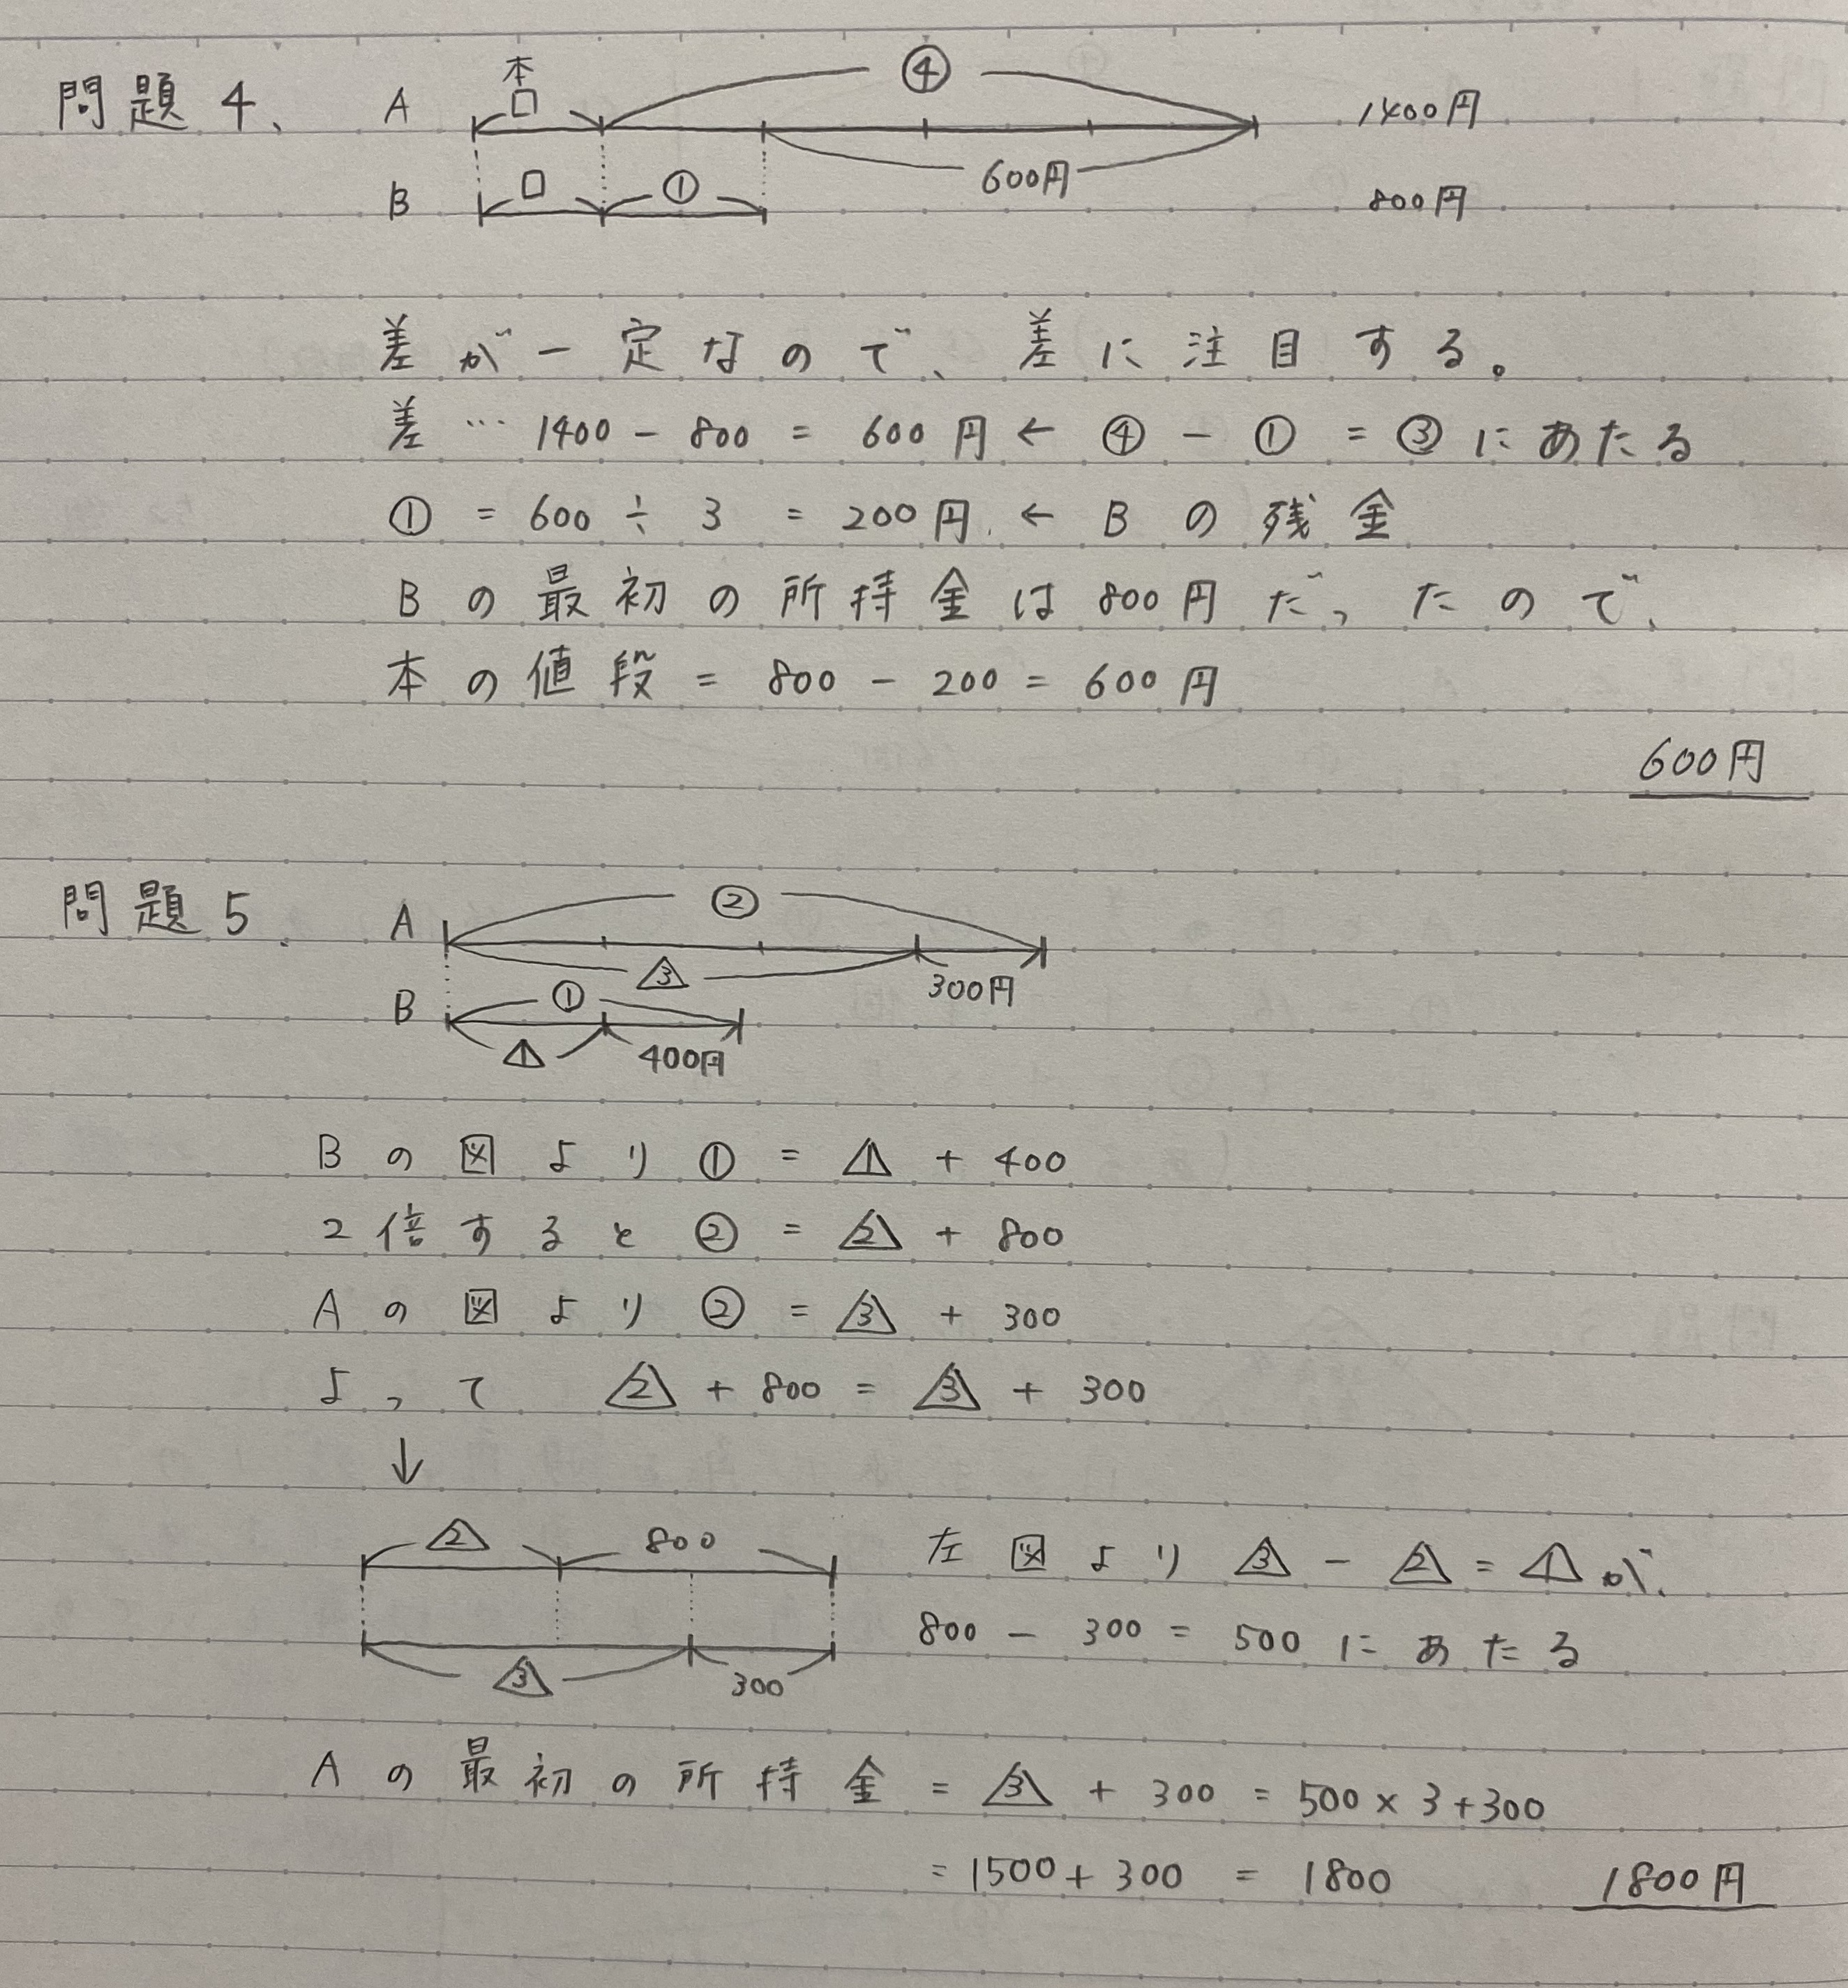 問題4、
本
A □ ④ 1400円
600円
B □ ① 800円
差が一定なので、差に注目する。
差… 1400 - 800 = 600円 ← ④ - ① = ③にあたる
① = 600 ÷ 3 = 200円. ← Bの残金
Bの最初の所持金は800円だったので、
本の値段 = 800 - 200 = 600円
600円
問題5.
A ②
△3 300円
B ①
△1 400円
Bの図より ① = △1 + 400
2倍すると ② = △2 + 800
Aの図より ② = △3 + 300
よって △2 + 800 = △3 + 300
↓
△2 800
△3 300
左図より △3 - △2 = △1が、
800 - 300 = 500にあたる
Aの最初の所持金 = △3 + 300 = 500 × 3 + 300
= 1500 + 300 = 1800
1800円